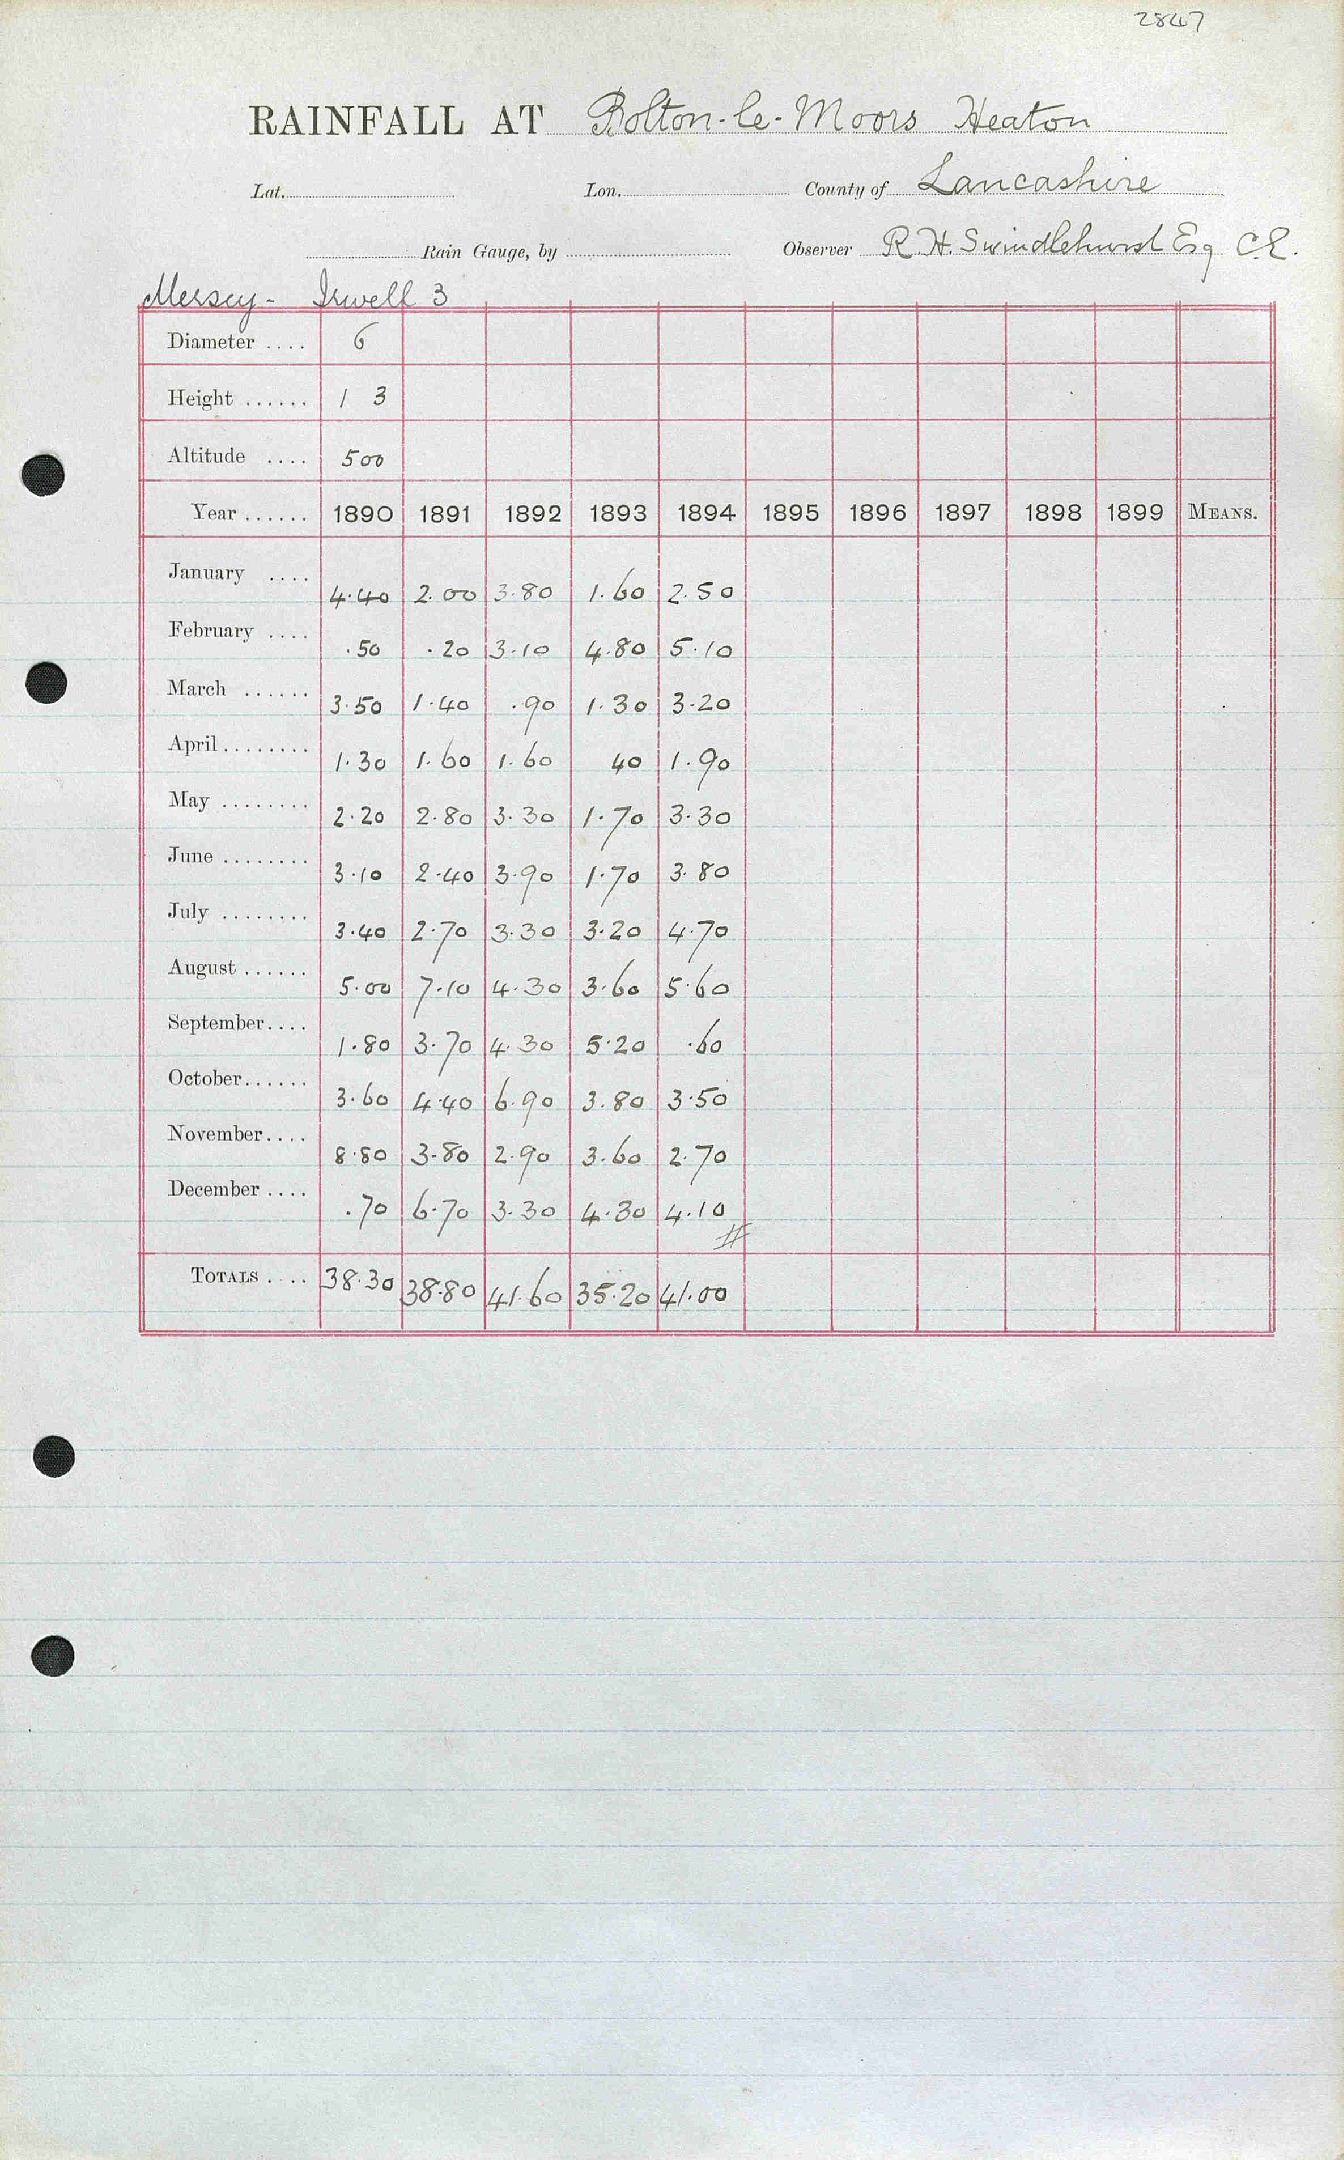 2847
RAINFALL AT Bolton-le-Moors Heaton
Lat. Lon. County of Lancashire
Rain Gauge, by Observer R. H. Swindlehurst Esq C.E.
Mersey - Irwell 3
Diameter .... 6
Height ...... 1 3
Altitude .... 500
Year ...... 1890 1891 1892 1893 1894 1895 1896 1897 1898 1899 MEANS.
January .... 4.40 2.00 3.80 1.60 2.50
February .... .50 .20 3.10 4.80 5.10
March ...... 3.50 1.40 .90 1.30 3.20
April ........ 1.30 1.60 1.60 40 1.90
May ........ 2.20 2.80 3.30 1.70 3.30
June ........ 3.10 2.40 3.90 1.70 3.80
July ........ 3.40 2.70 3.30 3.20 4.70
August ...... 5.00 7.10 4.30 3.60 5.60
September.... 1.80 3.70 4.30 5.20 .60
October...... 3.60 4.40 6.90 3.80 3.50
November.... 8.80 3.80 2.90 3.60 2.70
December .... .70 6.70 3.30 4.30 4.10
TOTALS .... 38.30 38.80 41.60 35.20 41.00